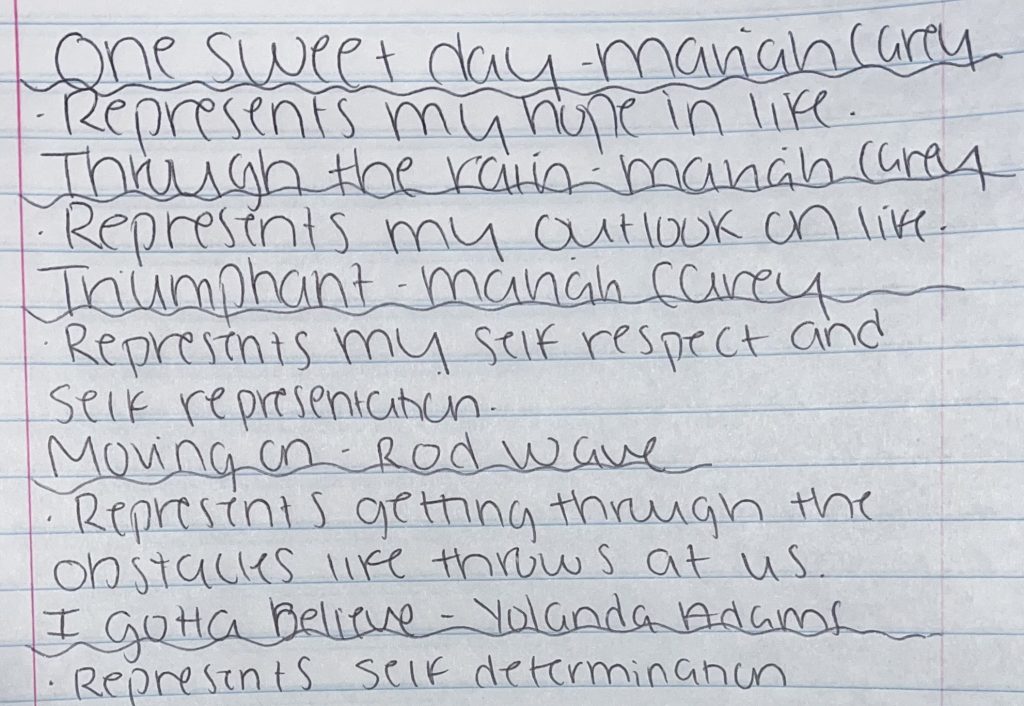 One sweet day - mariah Carey
· Represents my hope in life.
Through the rain - mariah Carey
· Represents my outlook on life.
Triumphant - mariah Carey
· Represents my self respect and
self representation.
Moving on - Rod wave
· Represents getting through the
obstacles life throws at us.
I gotta Believe - Yolanda Adams
· Represents self determination